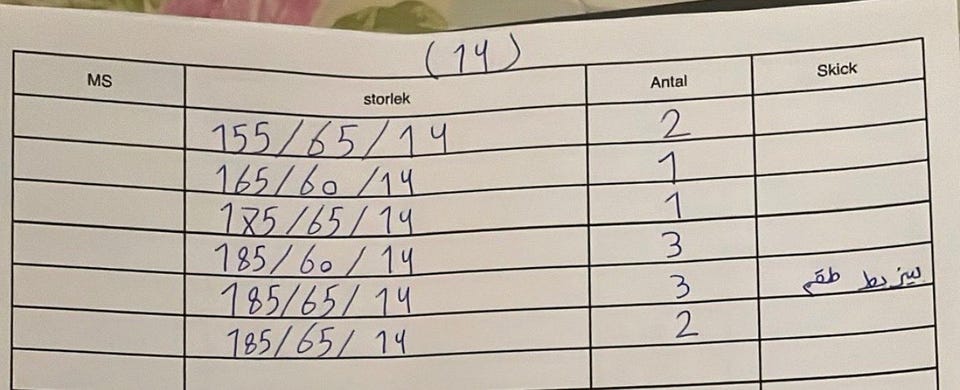 (14)
MS storlek Antal Skick
155/65/14 2
165/60/14 1
175/65/14 1
185/60/14 3
185/65/14 3 طقم
185/65/14 2